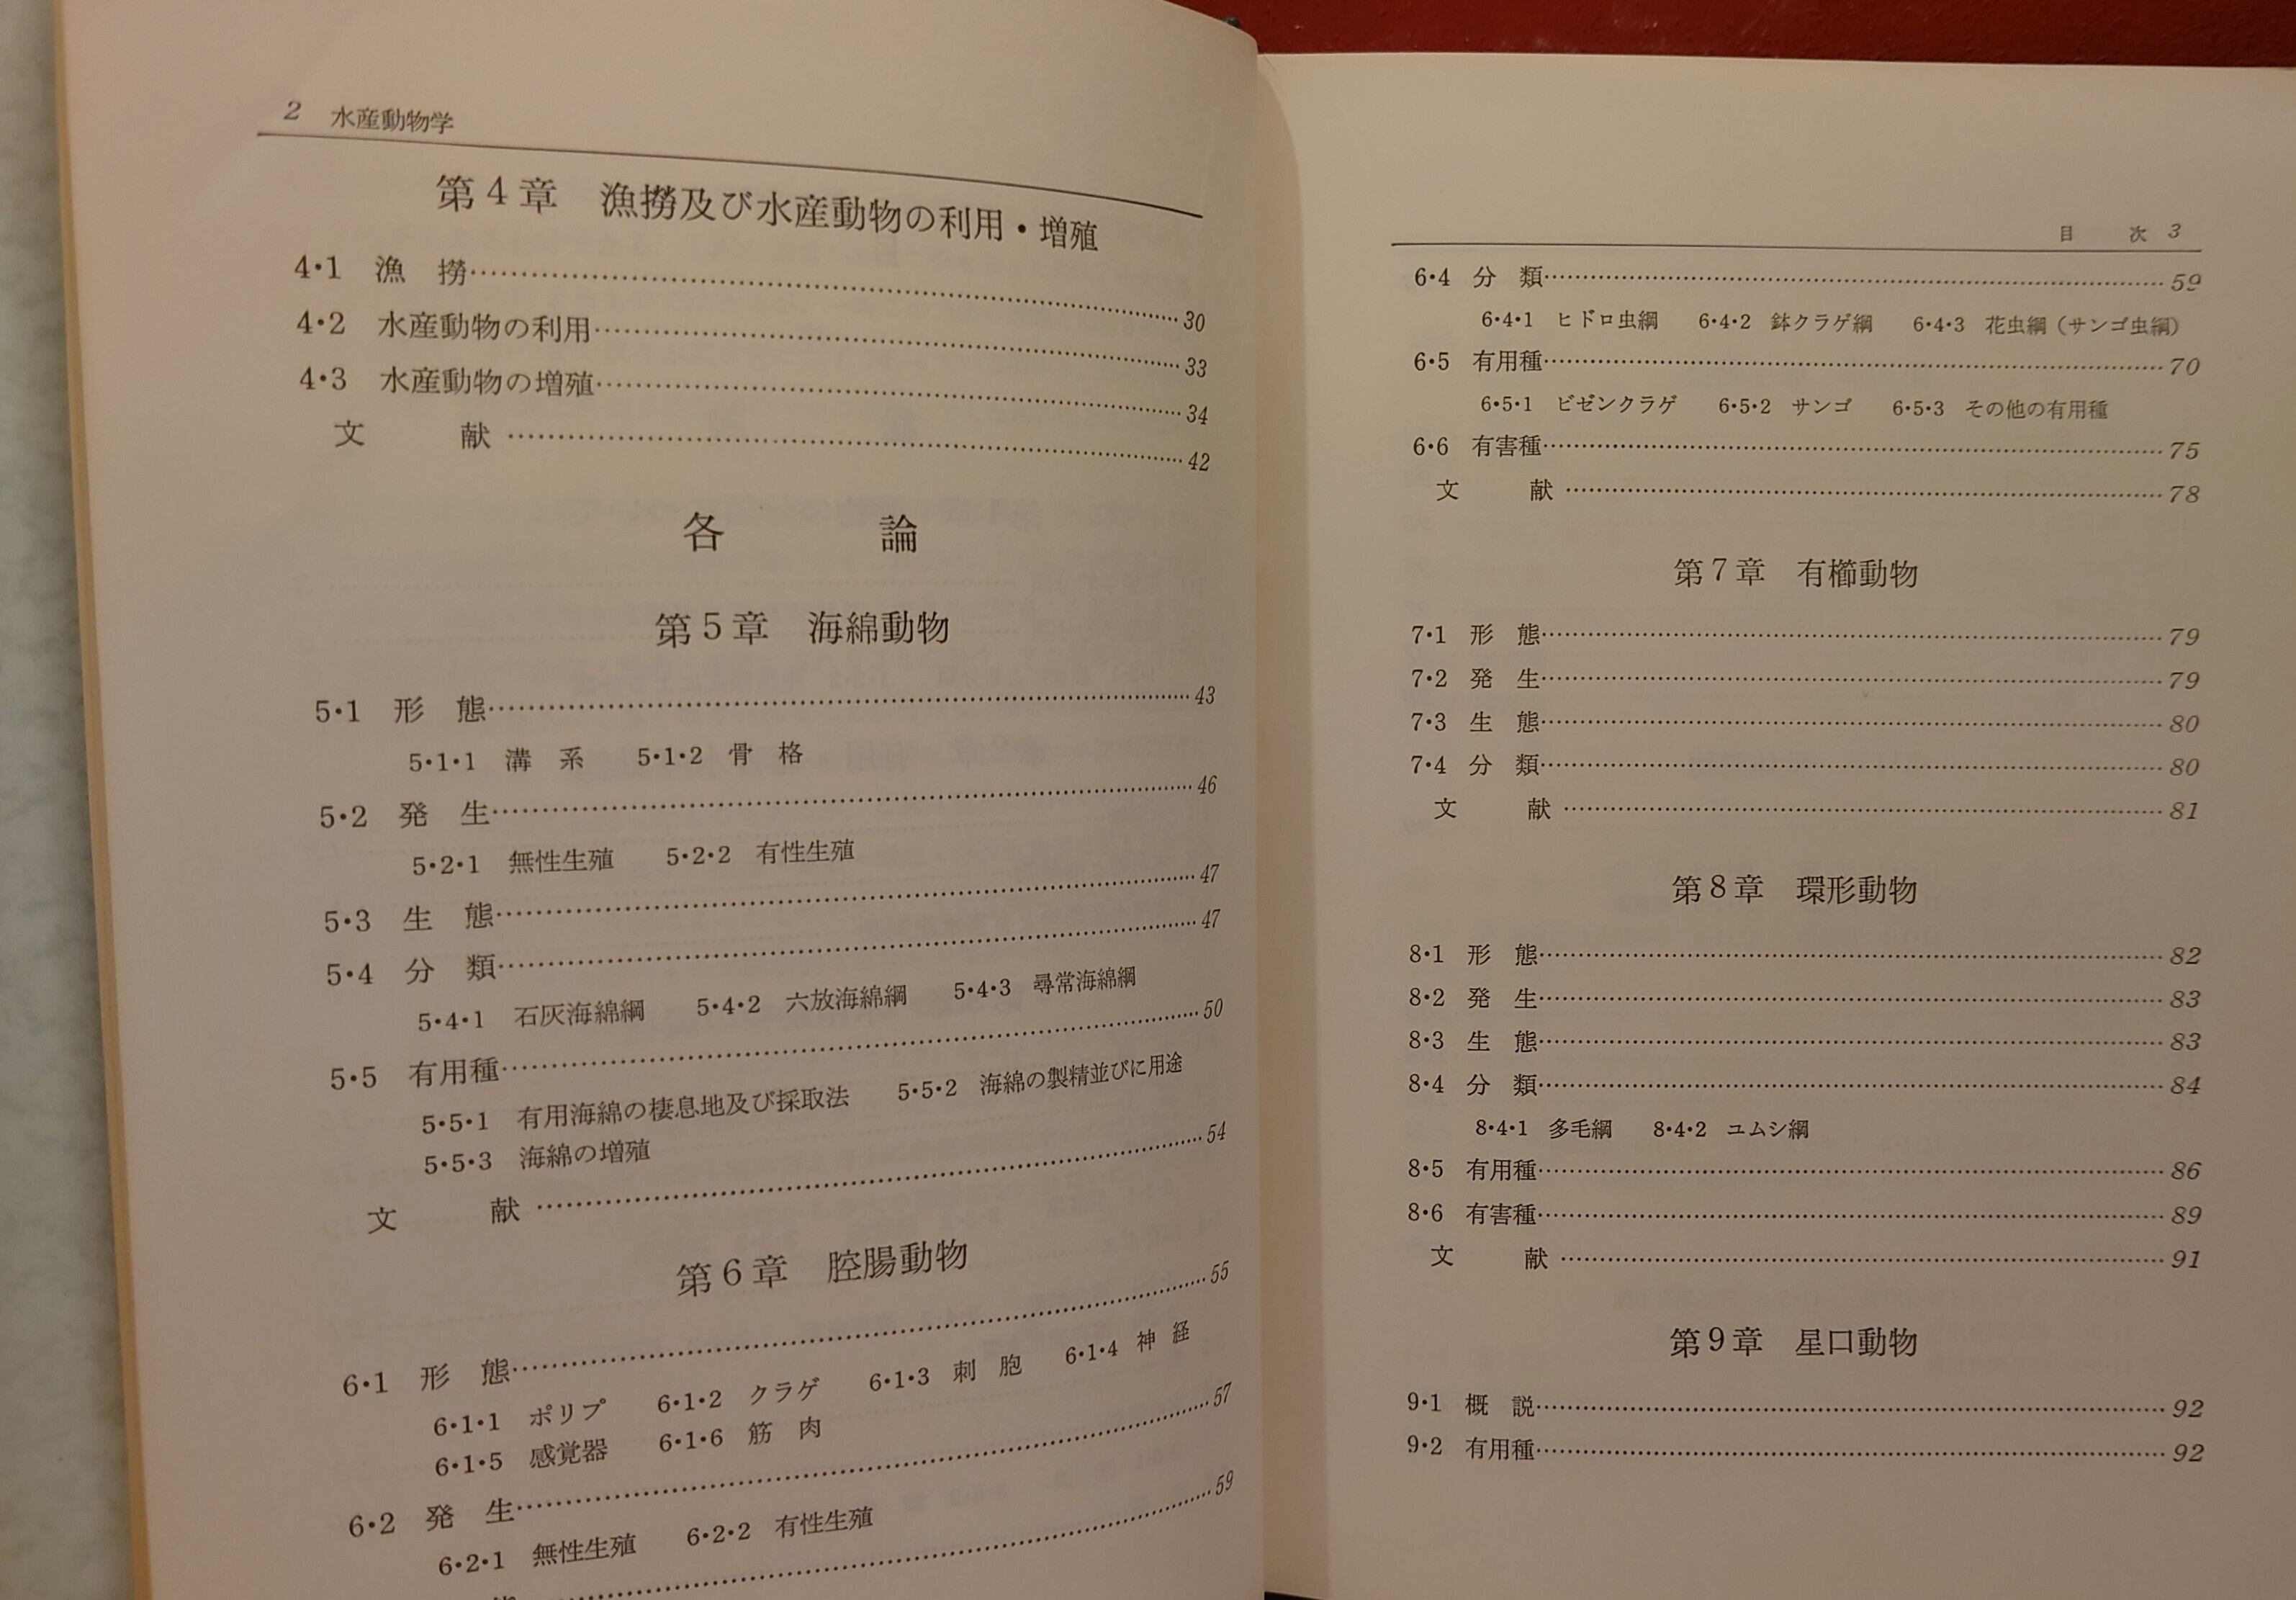 2 水産動物学
第4章 漁撈及び水産動物の利用・増殖
4・1 漁 撈……30
4・2 水産動物の利用……33
4・3 水産動物の増殖……34
文 献……42
各 論
第5章 海綿動物
5・1 形 態……43
5・1・1 溝 系 5・1・2 骨 格
5・2 発 生……46
5・2・1 無性生殖 5・2・2 有性生殖
5・3 生 態……47
5・4 分 類……47
5・4・1 石灰海綿綱 5・4・2 六放海綿綱 5・4・3 尋常海綿綱
5・5 有用種……50
5・5・1 有用海綿の棲息地及び採取法 5・5・2 海綿の製精並びに用途
5・5・3 海綿の増殖
文 献……54
第6章 腔腸動物
6・1 形 態……55
6・1・1 ポリプ 6・1・2 クラゲ 6・1・3 刺 胞 6・1・4 神 経
6・1・5 感覚器 6・1・6 筋 肉
6・2 発 生……57
6・2・1 無性生殖 6・2・2 有性生殖
……59
目 次 3
6・4 分 類……59
6・4・1 ヒドロ虫綱 6・4・2 鉢クラゲ綱 6・4・3 花虫綱（サンゴ虫綱）
6・5 有用種……70
6・5・1 ビゼンクラゲ 6・5・2 サンゴ 6・5・3 その他の有用種
6・6 有害種……75
文 献……78
第7章 有櫛動物
7・1 形 態……79
7・2 発 生……79
7・3 生 態……80
7・4 分 類……80
文 献……81
第8章 環形動物
8・1 形 態……82
8・2 発 生……83
8・3 生 態……83
8・4 分 類……84
8・4・1 多毛綱 8・4・2 ユムシ綱
8・5 有用種……86
8・6 有害種……89
文 献……91
第9章 星口動物
9・1 概 説……92
9・2 有用種……92